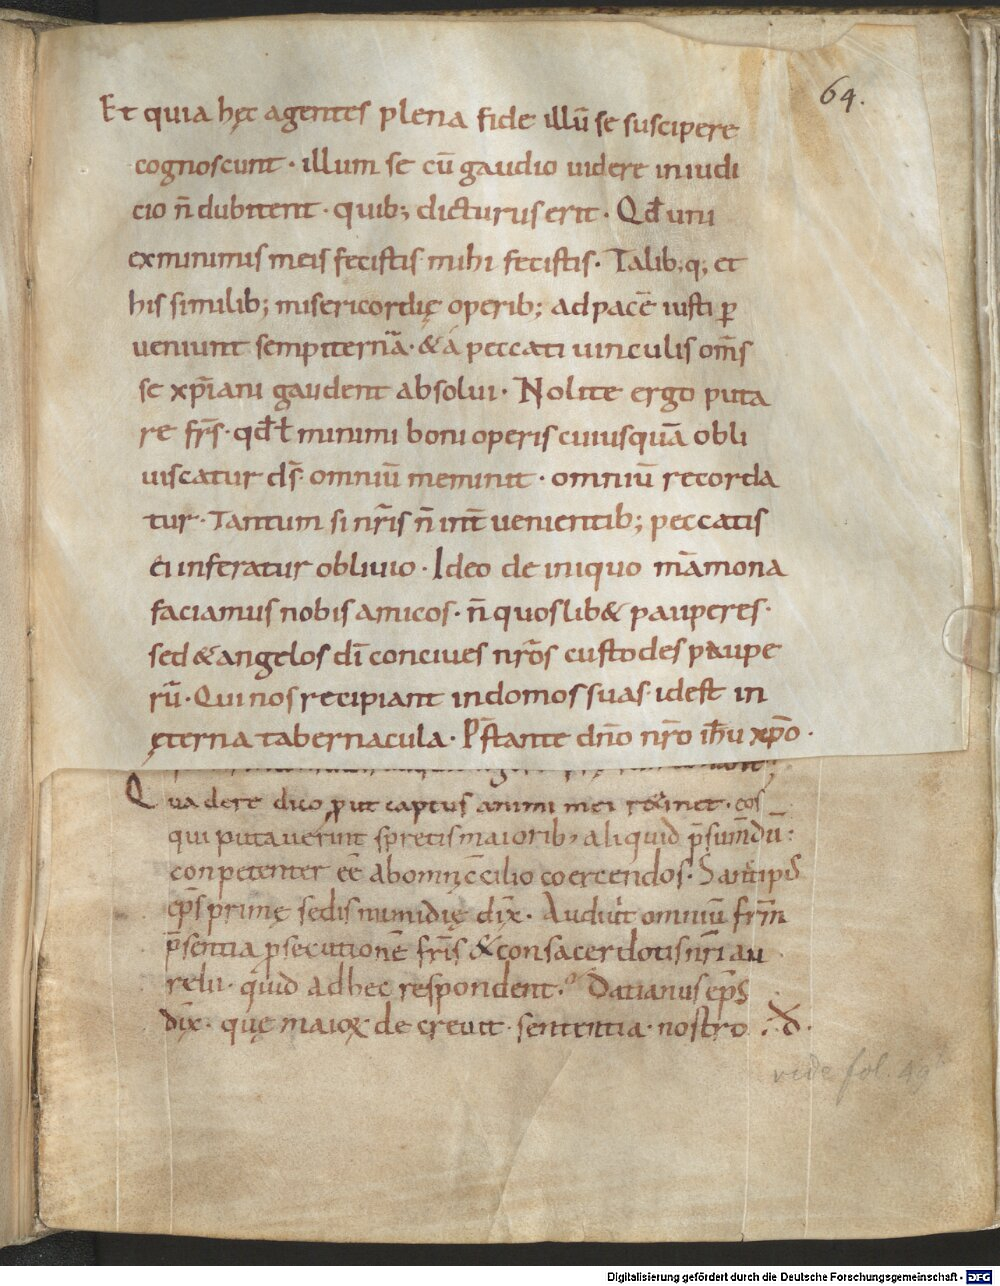 64.
Et quia hęc agentes plena fide illū se suscipere
cognoscunt · illum se cū gaudio uidere iniudi
cio n̄ dubitent · quib; dicturus erit · Qđ uni
exminimis meis fecistis mihi fecistis · Talib;q; et
his similib; misericordię operib; adpacē iusti ꝑ
ueniunt sempiternā · & á peccati uinculis om̄s
se xp̄iani gaudent absolui · Nolite ergo puta
re fr̄s · qđ ł minimi boni operis cuiusquā obli
uiscatur d̄s · omniū meminit · omniū recorda
tur · Tantum si nr̄is n̄ int̄ uenientib; peccatis
ei inferatur obliuio · Ideo de iniquo māmona
faciamus nobis amicos · n̄ quoslib& pauperes ·
sed & angelos dī conciues nr̄os custodes paupe
rū · Qui nos recipiant indomos suas · idest in
ęterna tabernacula · P̄stante dn̄o nr̄o ih̄u xp̄o ·
Qua dere dico ꝓut captus animi mei r&inet · eos
qui putauerint spretis maiorib; aliquid p̄sumēdū :
conpetenter eē abomnęcēcilio coercendos · Santipꝰ
ep̄s primę sedis numidię dix̄ · Audiuit omniū frm̄
p̄sentia ꝓsecutionē fr̄is & consacerdotis nr̄i au
relii · quid adhec respondent · Datianus ep̄s
dix̄ · quę maioꝝ decreuit · sententia · nostro
vide fol. 49
Digitalisierung gefördert durch die Deutsche Forschungsgemeinschaft - DFG